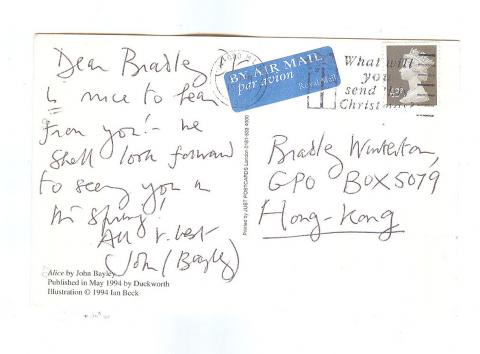 Dear Bradley
is nice to hear
from you! – we
shall look forward
to seeing you in
the Spring,
All v. best
John (Bayley)
Alice by John Bayley
Published in May 1994 by Duckworth
Illustration © 1994 Ian Beck
Printed by JUST POSTCARDS London
BY AIR MAIL
par avion
Royal Mail
What will
you
send
Christmas
Bradley Winterton,
GPO BOX 5079
Hong-Kong